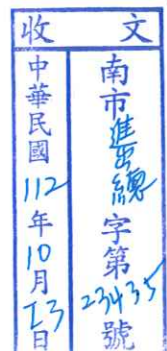 收文
南市進出總字第23435號
中華民國112年10月23日